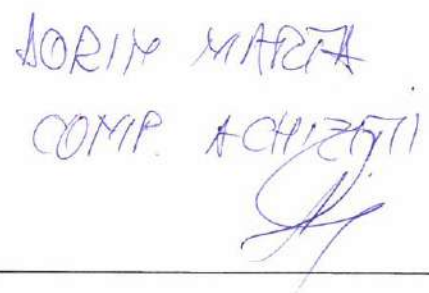 SORIN MARTA
COMP. ACHIZITII